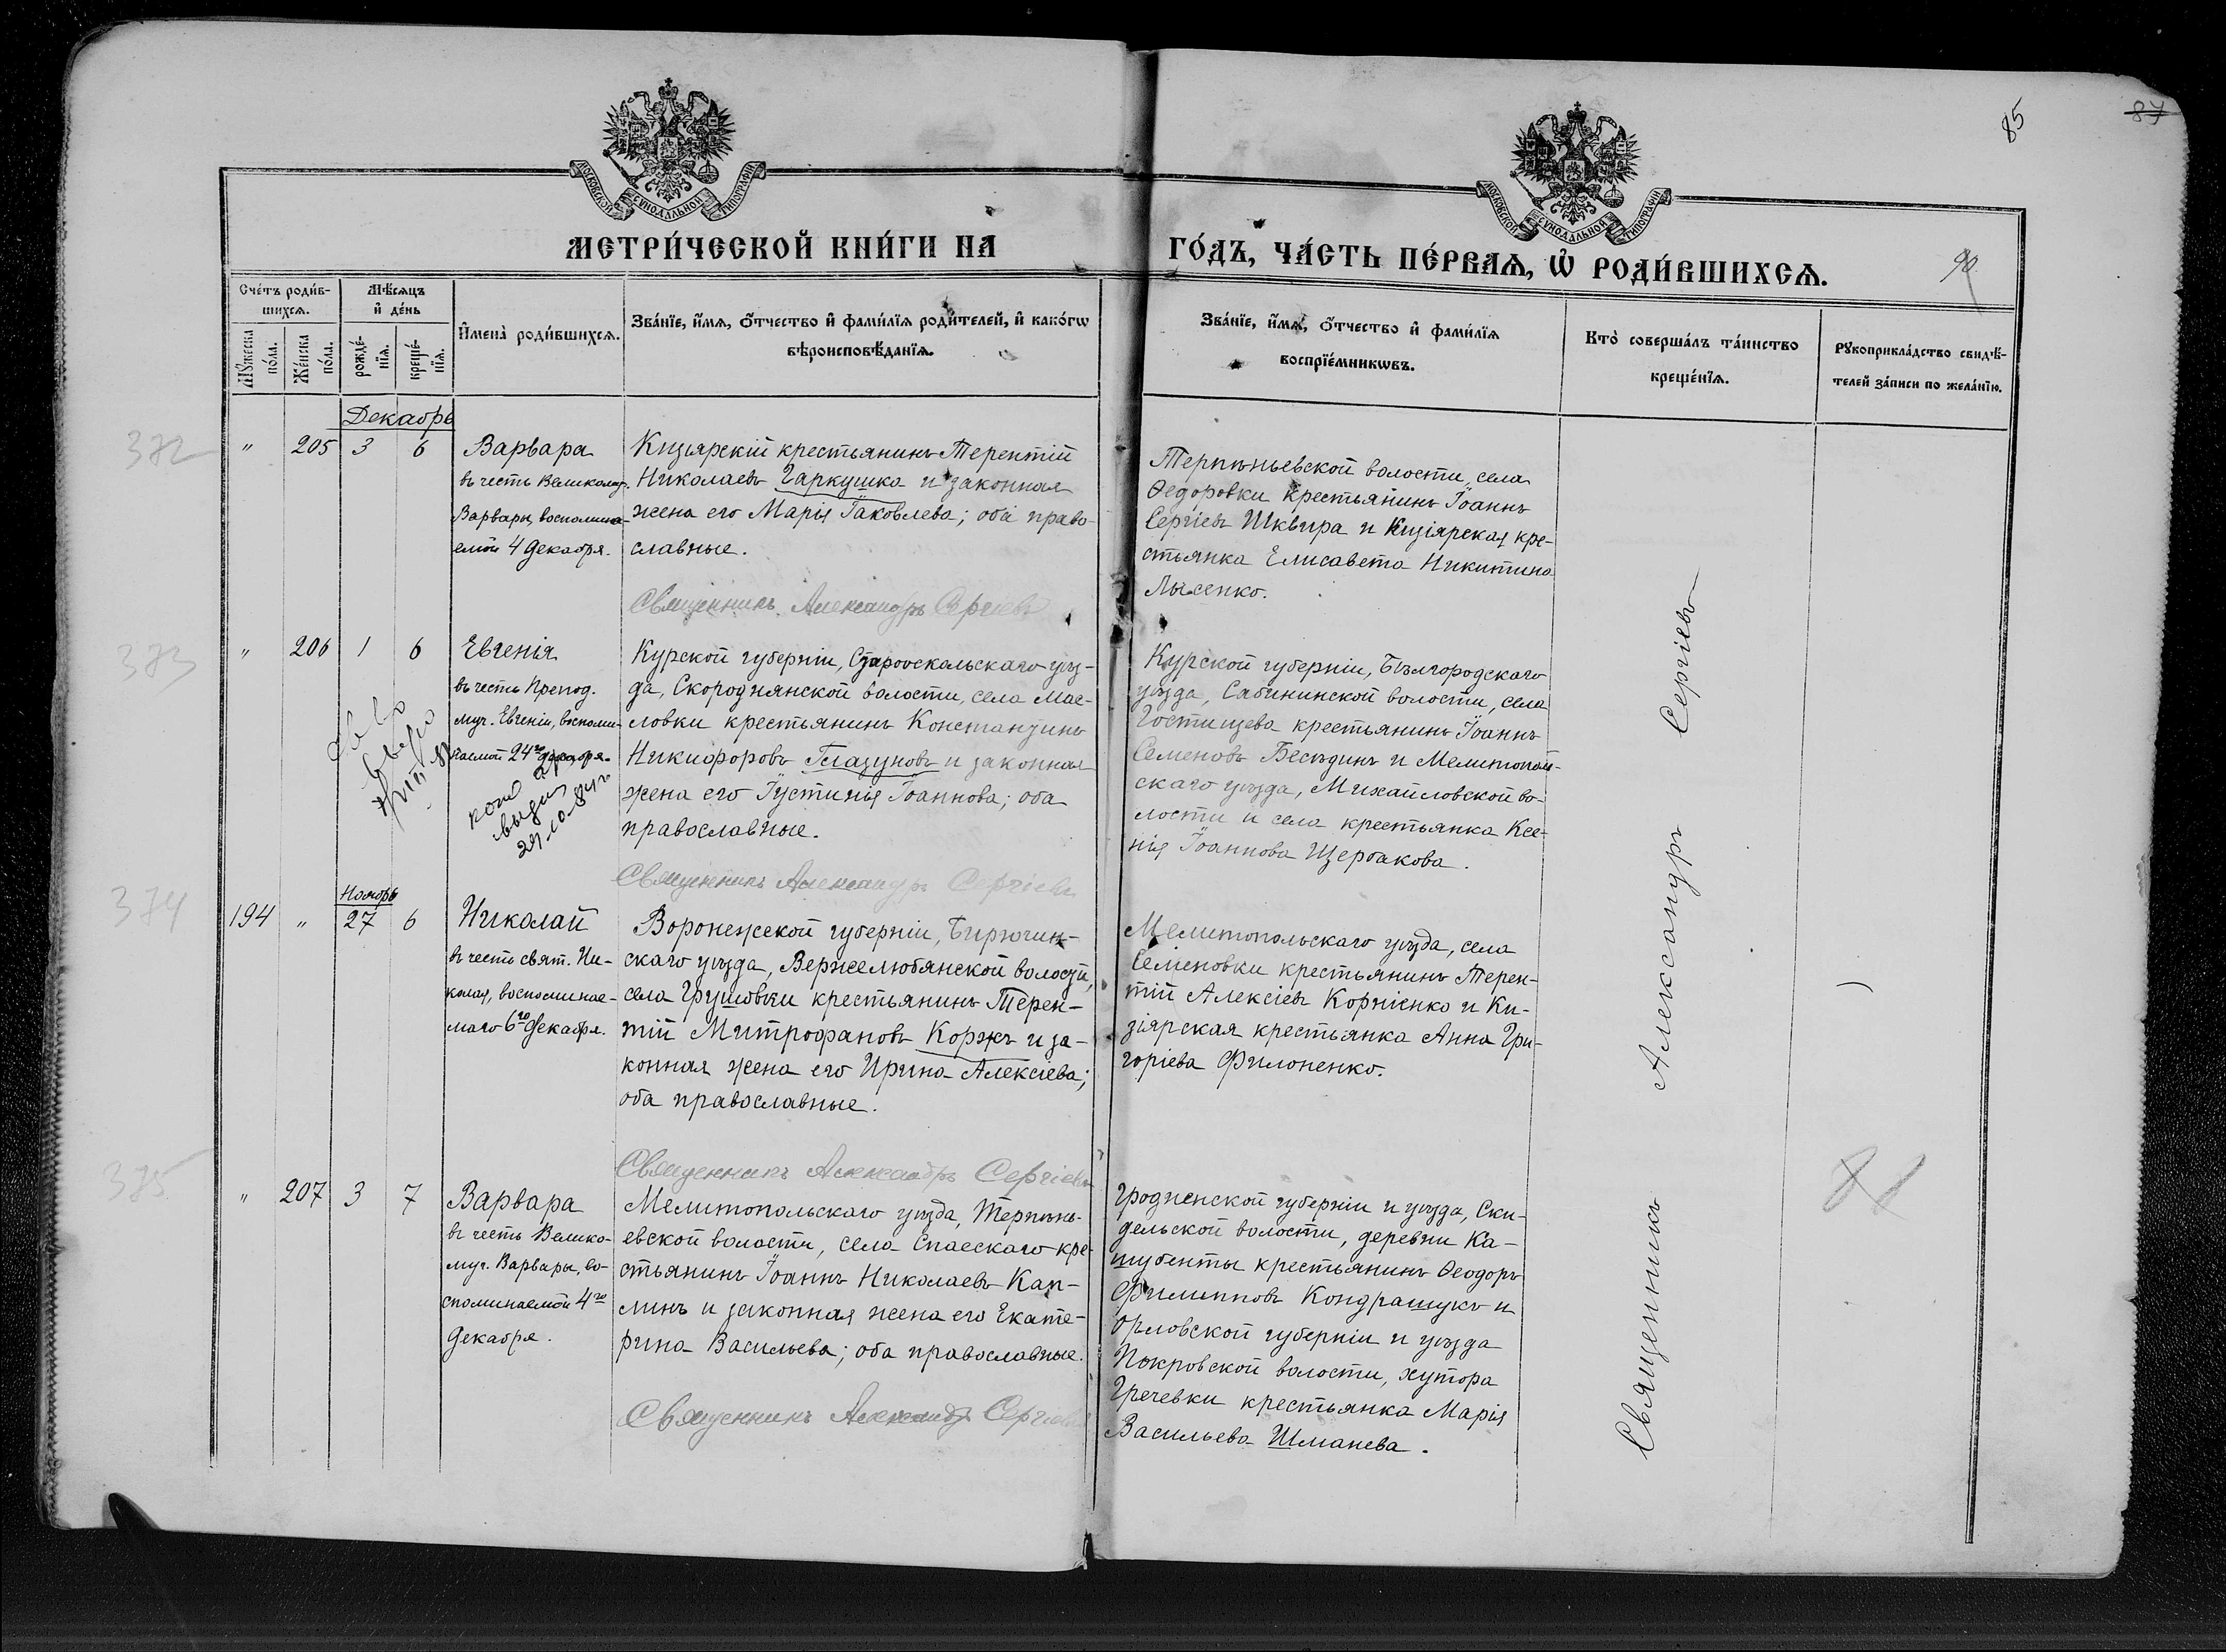 85
87
МОСКОВСКОЙ СѴНОДАЛЬНОЙ ТИПОГРАФІИ
МОСКОВСКОЙ СѴНОДАЛЬНОЙ ТИПОГРАФІИ
МЕТРИ́ЧЕСКОЙ КНИ́ГИ НА
ГО́ДЪ, ЧА́СТЬ ПЕ́РВАѦ, Ѽ РОДИ́ВШИХСѦ.
90
Сче́тъ роди́в-
шихсѧ.
Мꙋ́жеска
по́ла.
Же́нска
по́ла.
Мѣ́сѧцъ
и҆ де́нь
рожде́-
нїѧ.
креще́-
нїѧ.
И҆мена̀ роди́вшихсѧ.
Зва́нїе, и҆́мѧ, ѻ҆́тчество и҆ фами́лїѧ роди́телей, и҆ како́гѡ
вѣроисповѣ́данїѧ.
Зва́нїе, и҆́мѧ, ѻ҆́тчество и҆ фами́лїѧ
воспрїе́мникѡвъ.
Кто̀ соверша́лъ та́инство
креще́нїѧ.
Рꙋкоприкла́дство свидѣ́-
телей за́писи по жела́нїю.
Декабрь
372
" 205 3 6
Варвара
въ честь Великомуч.
Варвары, воспомина-
емой 4 Декабря.
Кизіярскій крестьянинъ Терентій
Николаевъ Гаркушка и законная
жена его Марія Іаковлева; оба право-
славные.
Священникъ Александръ Сергіевъ
Терпѣньевской волости, села
Ѳедоровки крестьянинъ Іоаннъ
Сергіевъ Шквыра и Кизіярская кре-
стьянка Елисавета Никитина
Лысенко.
373
" 206 1 6
Евгенія
въ честь Препод.
муч. Евгеніи, воспоми-
наемой 24го Декабря.
выдана
Курской губерніи, Старооскольскаго уѣз-
да, Скороднянской волости, села Мас-
ловки крестьянинъ Константинъ
Никифоровъ Глазуновъ и законная
жена его Іустинія Іоаннова; оба
православные.
Священникъ Александръ Сергіевъ
Курской губерніи, Бѣлгородскаго
уѣзда, Сабынинской волости, села
Гостищева крестьянинъ Іоаннъ
Семеновъ Бесѣдинъ и Мелитополь-
скаго уѣзда, Михайловской во-
лости и села крестьянка Ксе-
нія Іоаннова Щербакова.
374
Ноябрь
194 " 27 6
Николай
въ честь свят. Ни-
колая, воспоминае-
маго 6го Декабря.
Воронежской губерніи, Бирючин-
скаго уѣзда, Верхнелюбянской волости,
села Грушовки крестьянинъ Терен-
тій Митрофановъ Коржъ и за-
конная жена его Ирина Алексіева;
оба православные.
Священникъ Александръ Сергіевъ
Мелитопольскаго уѣзда, села
Семеновки крестьянинъ Терен-
тій Алексіевъ Корніенко и Ки-
зіярская крестьянка Анна Гри-
горіева Филоненко.
375
" 207 3 7
Варвара
въ честь Велико-
муч. Варвары, во-
споминаемой 4го
Декабря.
Мелитопольскаго уѣзда, Терпѣнь-
евской волости, села Спасскаго кре-
стьянинъ Іоаннъ Николаевъ Кап-
линъ и законная жена его Екате-
рина Васильева; оба православные.
Священникъ Александръ Сергіевъ
Гродненской губерніи и уѣзда, Ски-
дельской волости, деревни Ка-
шубенты крестьянинъ Ѳеодоръ
Филипповъ Кондрашукъ и
Орловской губерніи и уѣзда
Покровской волости, хутора
Гречевки крестьянка Марія
Васильева Шманева.
Священникъ Александръ Сергіевъ